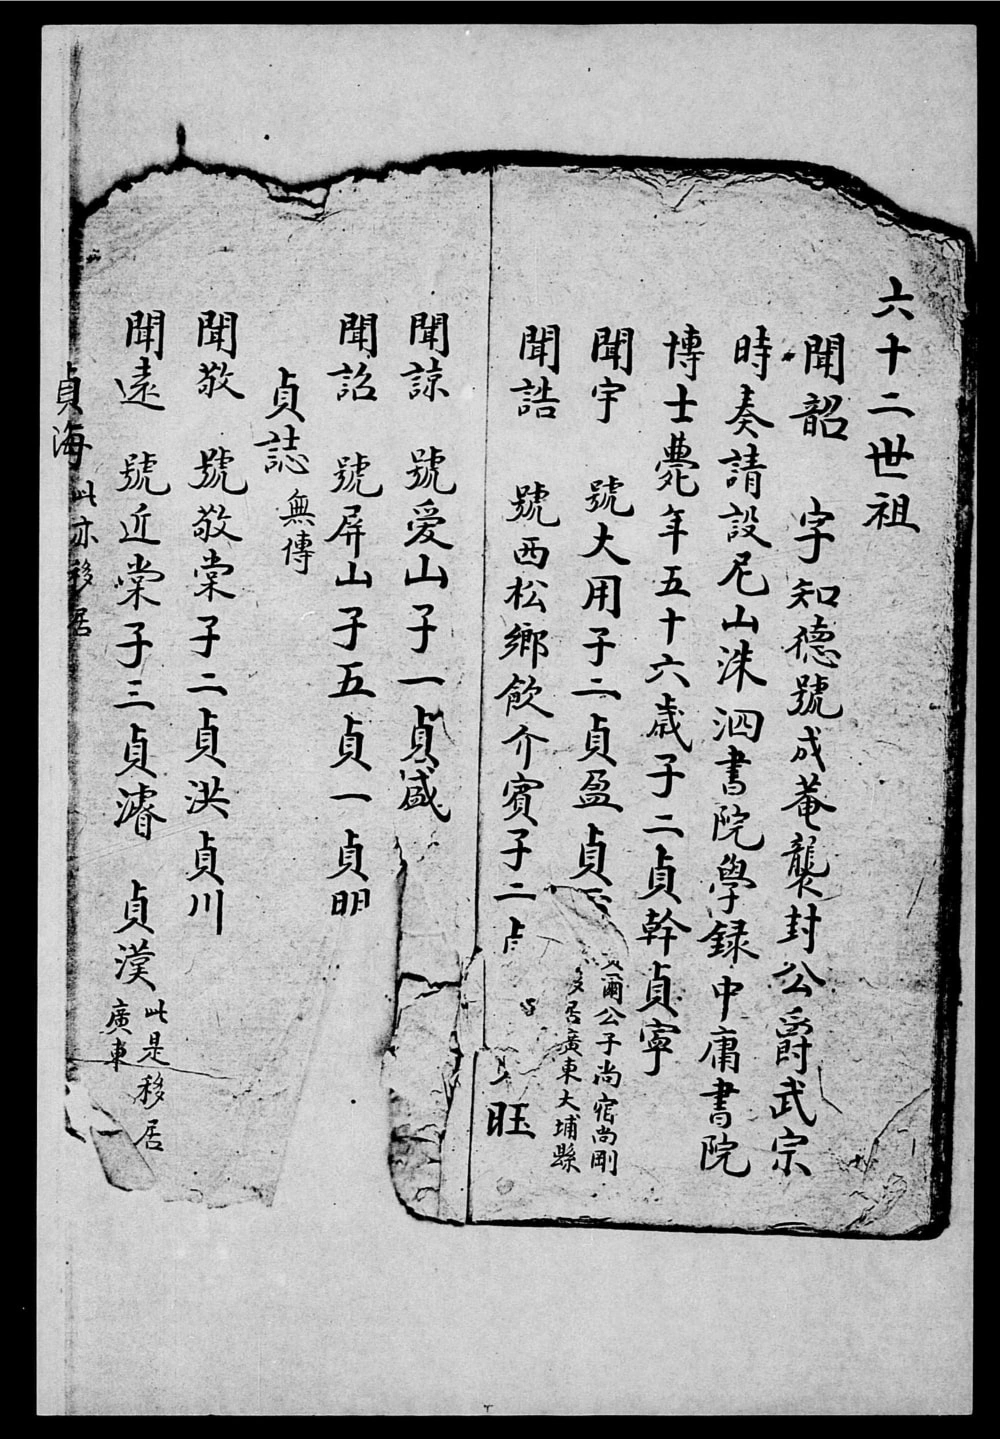 六十二世祖
聞韶 字知德號成菴襲封公爵武宗
時奏請設尼山洙泗書院學録中庸書院
博士薨年五十六歲子二貞幹貞寧
聞宇 號大用子二貞盈貞
爾公子尚㝛尚剛
居廣東大埔縣
聞誥 號西松鄉飲介賓子二
旺
聞諒 號爱山子一貞盛
聞詔 號屏山子五貞一貞明
貞誌 無傳
聞敬 號敬棠子二貞洪貞川
聞遠 號近棠子三貞濬 貞漢
此是移居
廣東
貞海 此亦移居